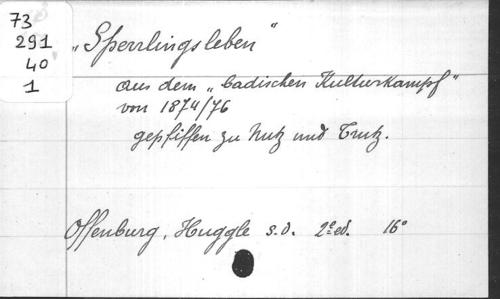 73
291
40
1
„Sperrlingsleben"
aus dem „badischen Kulturkampf"
von 1874/76
gepfiffen zu Nutz und Trutz.
Offenburg, Huggle s.d. 2e ed. 16°